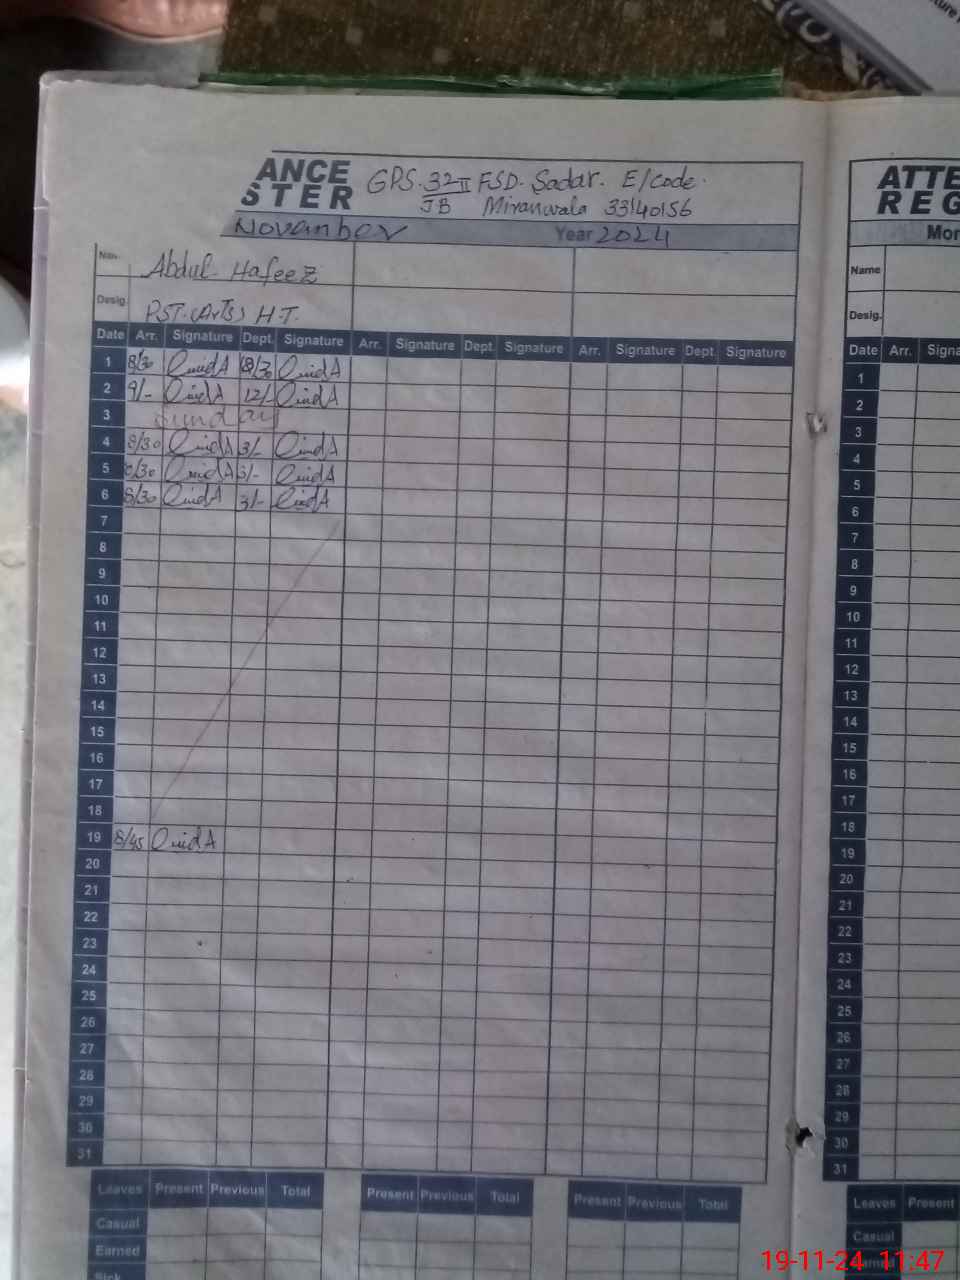 ANCE
STER
GPS. 32-II FSD. Sadar. E/Code.
JB Miranwala 33140156
Novamber Year 2024
Abdul Hafeez
Desig. PST (Arts) H.T.
Date Arr. Signature Dept. Signature Arr. Signature Dept. Signature Arr. Signature Dept. Signature
1 8/30
2 9/- 12/-
3 Sunday
4 8/30 3/-
5 8/30 3/-
6 8/30 3/-
7
8
9
10
11
12
13
14
15
16
17
18
19 8/45
20
21
22
23
24
25
26
27
28
29
30
31
Leaves Present Previous Total Present Previous Total Present Previous Total
Casual
Earned
Sick
ATTE
REG
Mon
Name
Desig.
Date Arr. Signa
1
2
3
4
5
6
7
8
9
10
11
12
13
14
15
16
17
18
19
20
21
22
23
24
25
26
27
28
29
30
31
Leaves Present
Casual
19-11-24 11:47